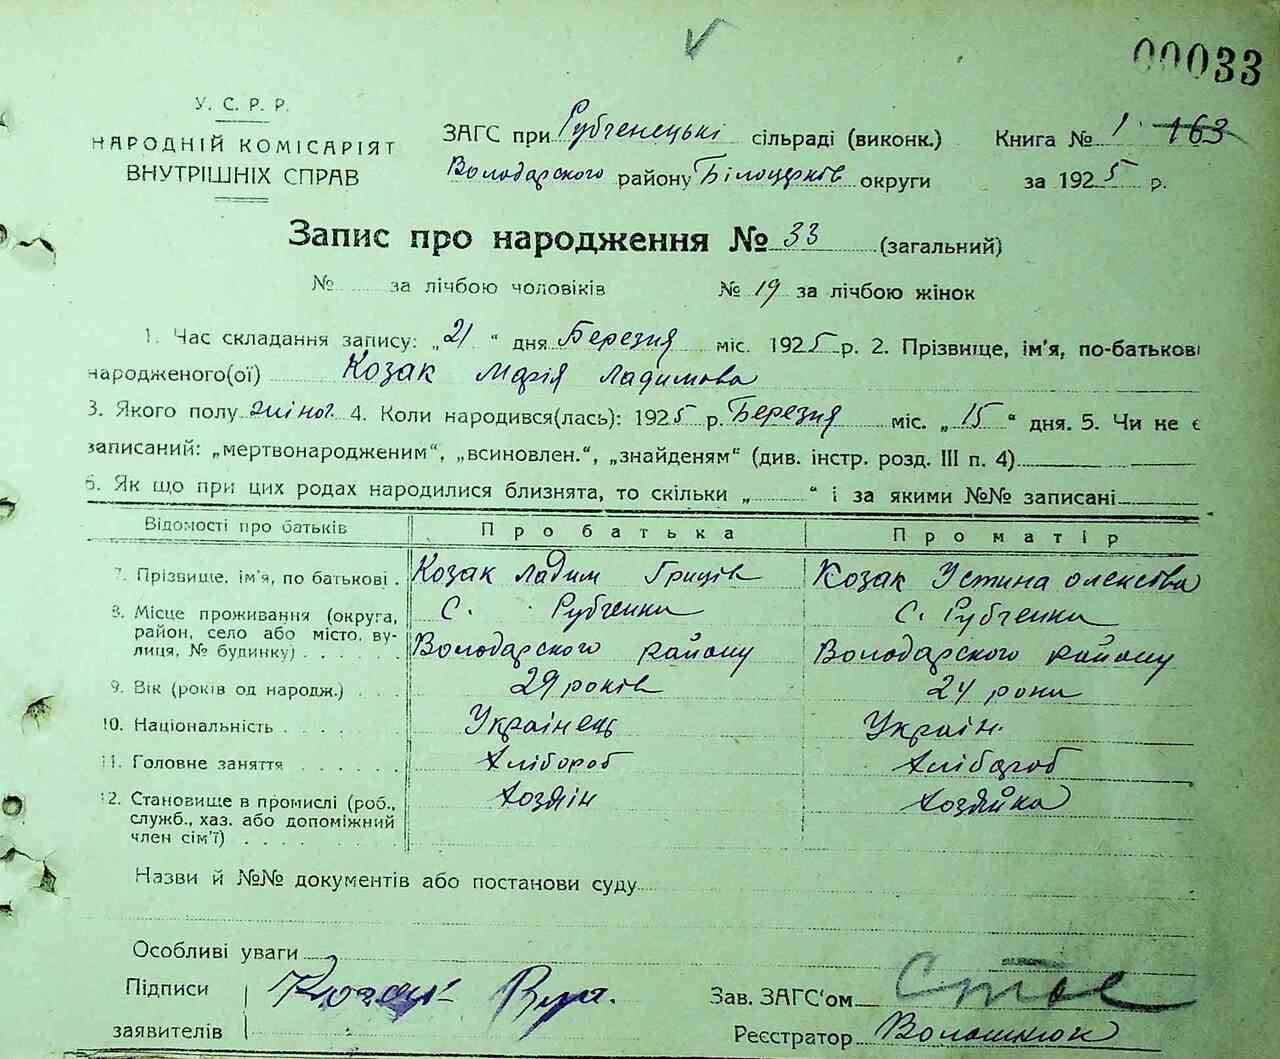 00033
У. С. Р. Р.
НАРОДНІЙ КОМІСАРІЯТ
ВНУТРІШНІХ СПРАВ
ЗАГС при Рубченецькі сільраді (виконк.) Книга № 1 163
Володарского району Білоцерків округи за 1925 р.
Запис про народження № 33 (загальний)
№ за лічбою чоловіків № 19 за лічбою жінок
1. Час складання запису: „21“ дня Березня міс. 1925 р. 2. Прізвище, ім'я, по-батькові
народженого(ої) Козак Марія Ладимова
3. Якого полу жіноч. 4. Коли народився(лась): 1925 р. Березня міс. „15“ дня. 5. Чи не є
записаний: „мертвонародженим“, „всиновлен.“, „знайденям“ (див. інстр. розд. III п. 4)
6. Як що при цих родах народилися близнята, то скільки „ “ і за якими №№ записані
Відомості про батьків Про батька Про матір
7. Прізвище, ім'я, по батькові . Козак Ладим Гриців Козак Устина Олексієва
8. Місце проживання (округа, С. Рубченки С. Рубченки
район, село або місто, ву-
лиця, № будинку) . . . . . Володарского району Володарского району
9. Вік (років од народж.) . . . 29 років 24 роки
10. Національність . . . . . . Українець Україн.
11. Головне заняття . . . . . . Хлібороб Хлібароб
12. Становище в промислі (роб., Хозяїн Хозяйка
служб., хаз. або допоміжний
член сім'ї) . . . . . . . .
Назви й №№ документів або постанови суду
Особливі уваги
Підписи Козак Зав. ЗАГС'ом
заявителів Реєстратор Волошнюк